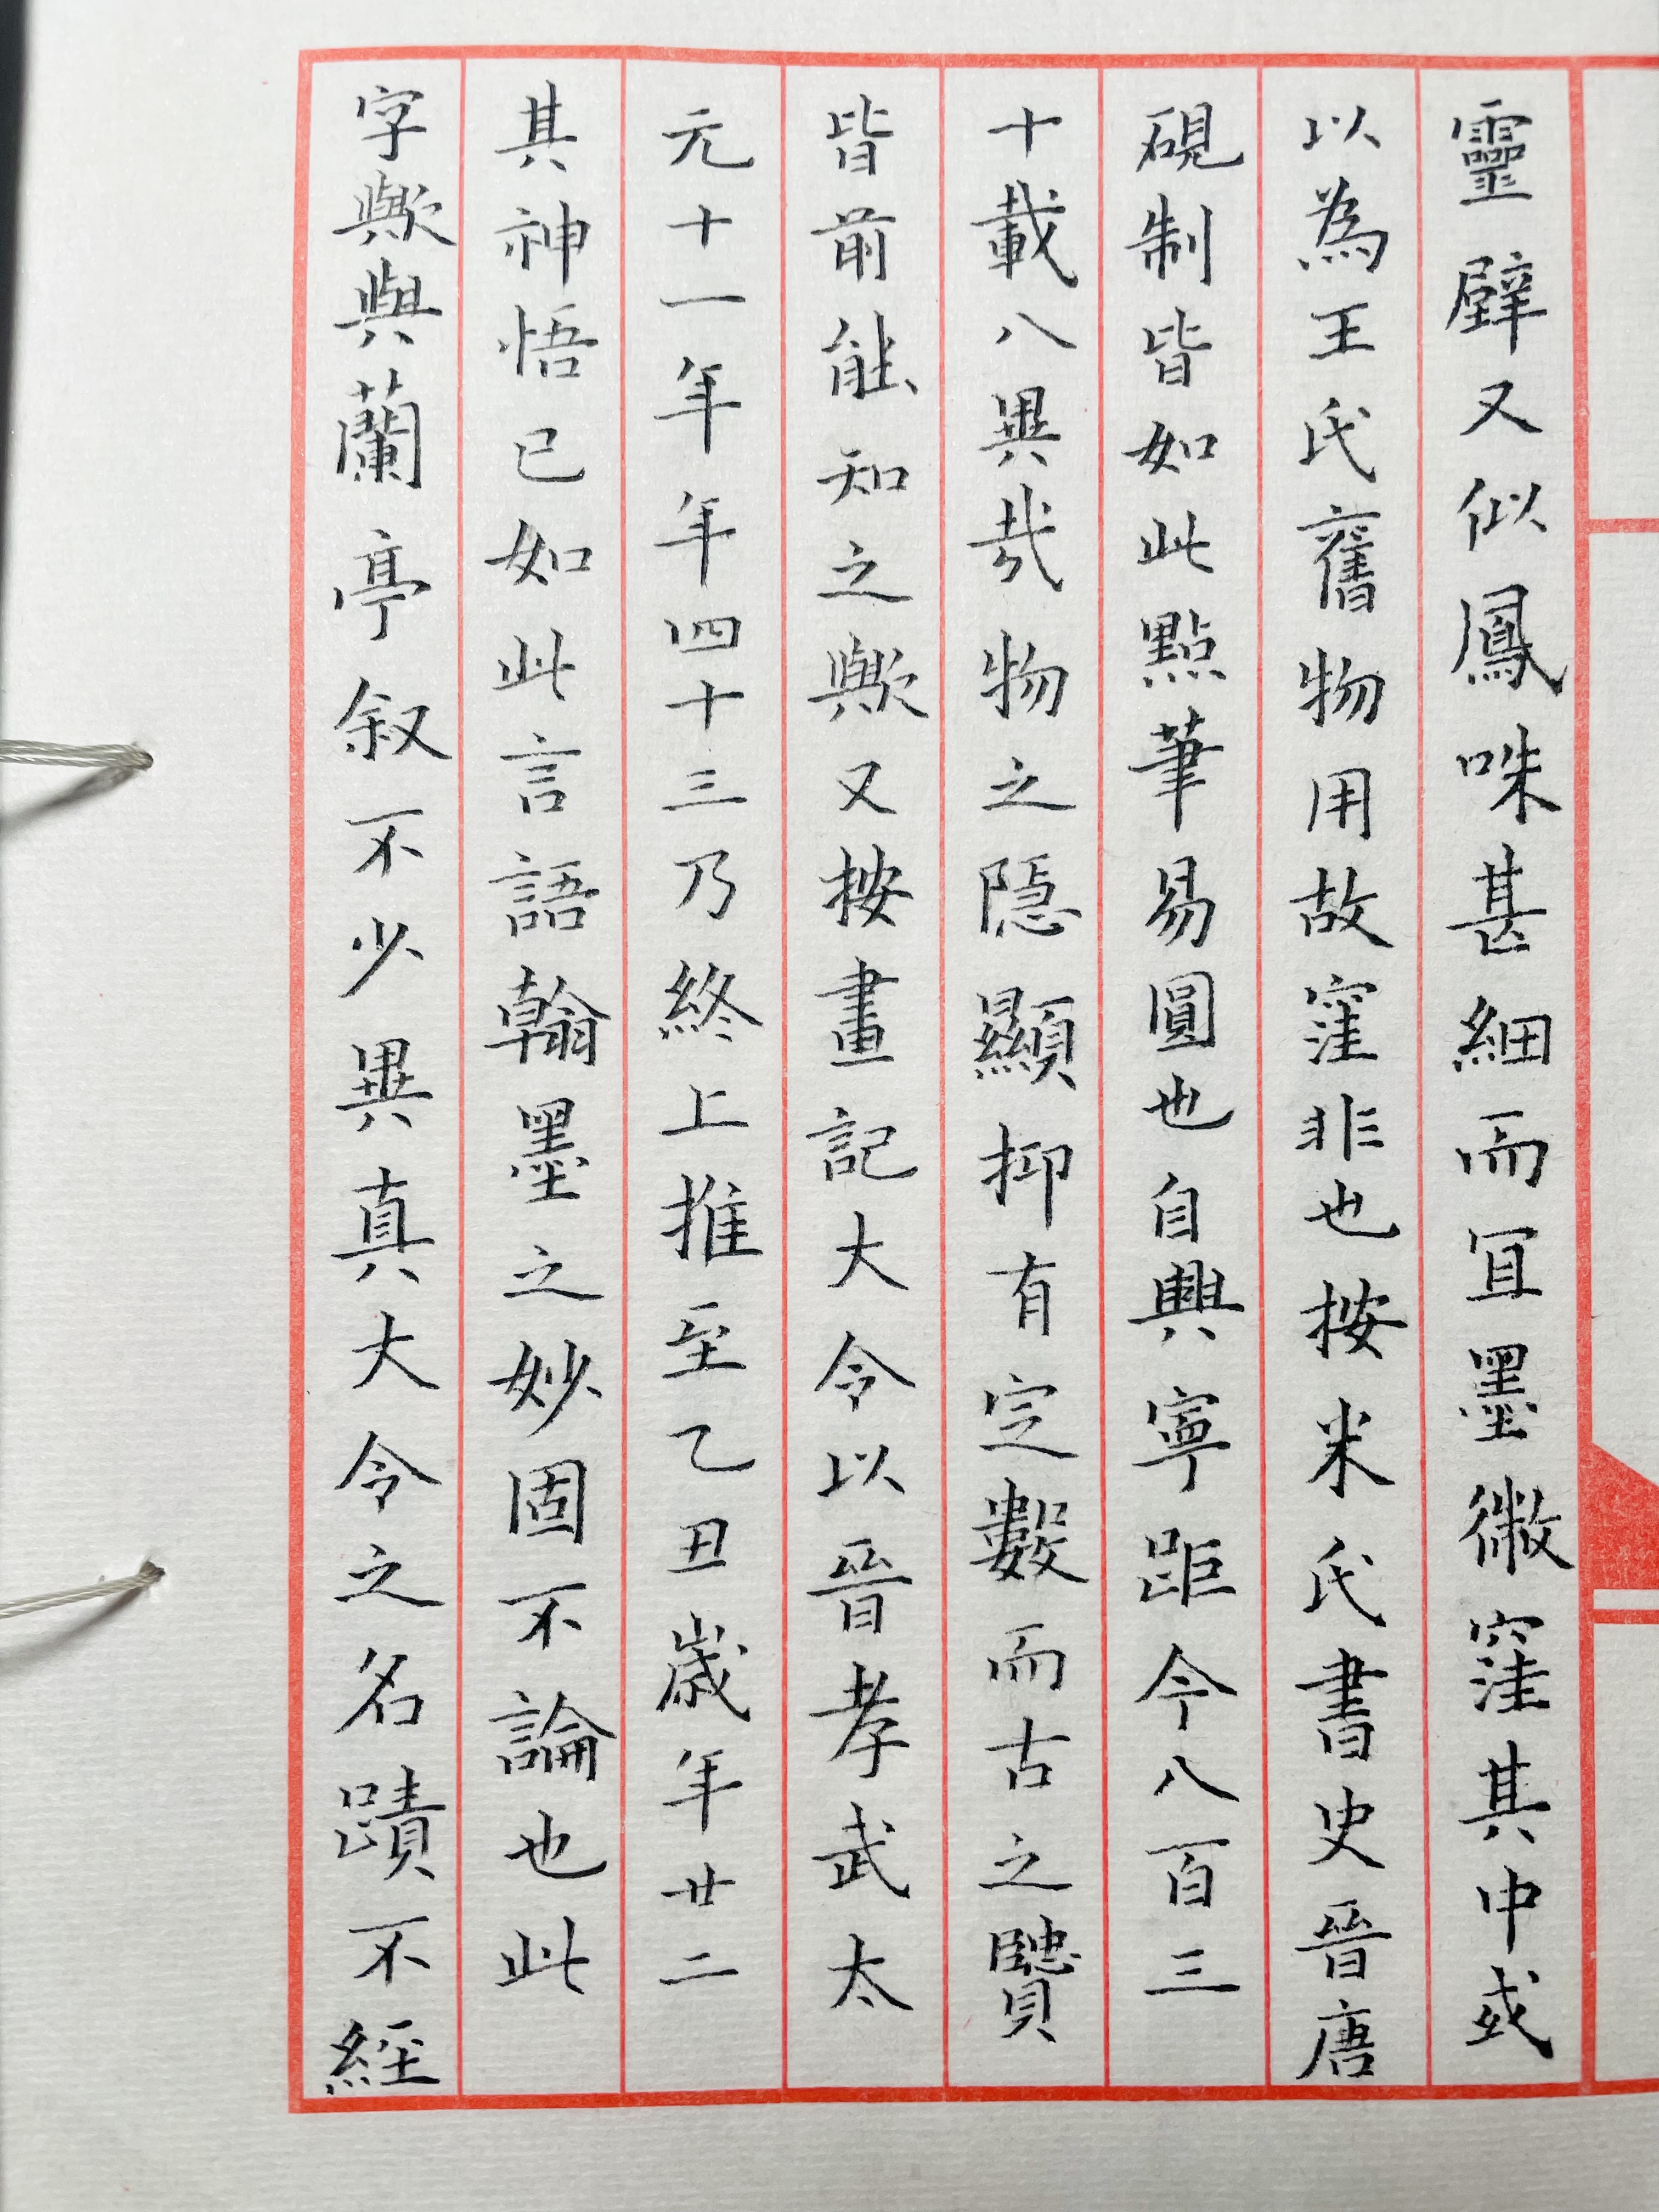 靈壁又似鳳咮甚細而宜墨微窪其中或
以為王氏舊物用故窪非也按米氏書史晉唐
硯制皆如此點筆易圓也自興寧距今八百三
十載八異哉物之隱顯抑有定數而古之賢
皆前能知之歟又按畫記大令以晉孝武太
元十一年年四十三乃終上推至乙丑歲年廿二
其神悟已如此言語翰墨之妙固不論也此
字歟與蘭亭叙不少異真大令之名蹟不經